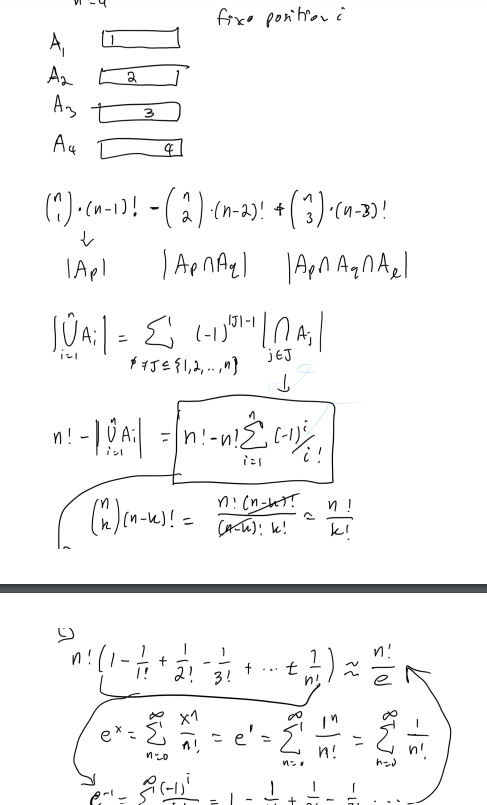 n=4
fixo position i
A₁ 1
A₂ 2
A₃ 3
A₄ 4
(n 1)·(n-1)! - (n 2)·(n-2)! + (n 3)·(n-3)!
↓
|Ap| |Ap∩Aq| |Ap∩Aq∩Aℓ|
|⋃ᵢ₌₁ⁿ Aᵢ| = Σ_{∅≠J⊆{1,2,..,n}} (-1)^{|J|-1} |⋂_{j∈J} Aⱼ|
↓
n! - |⋃ᵢ₌₁ⁿ Aᵢ| = n! - n! Σᵢ₌₁ⁿ (-1)ⁱ/i!
(n k)(n-k)! = n!(n-k)!/(n-k)! k! = n!/k!
n!(1 - 1/1! + 1/2! - 1/3! + ... ± 1/n!) ≈ n!/e
eˣ = Σₙ₌₀^∞ xⁿ/n! = e¹ = Σₙ₌₀^∞ 1ⁿ/n! = Σₙ₌₀^∞ 1/n!